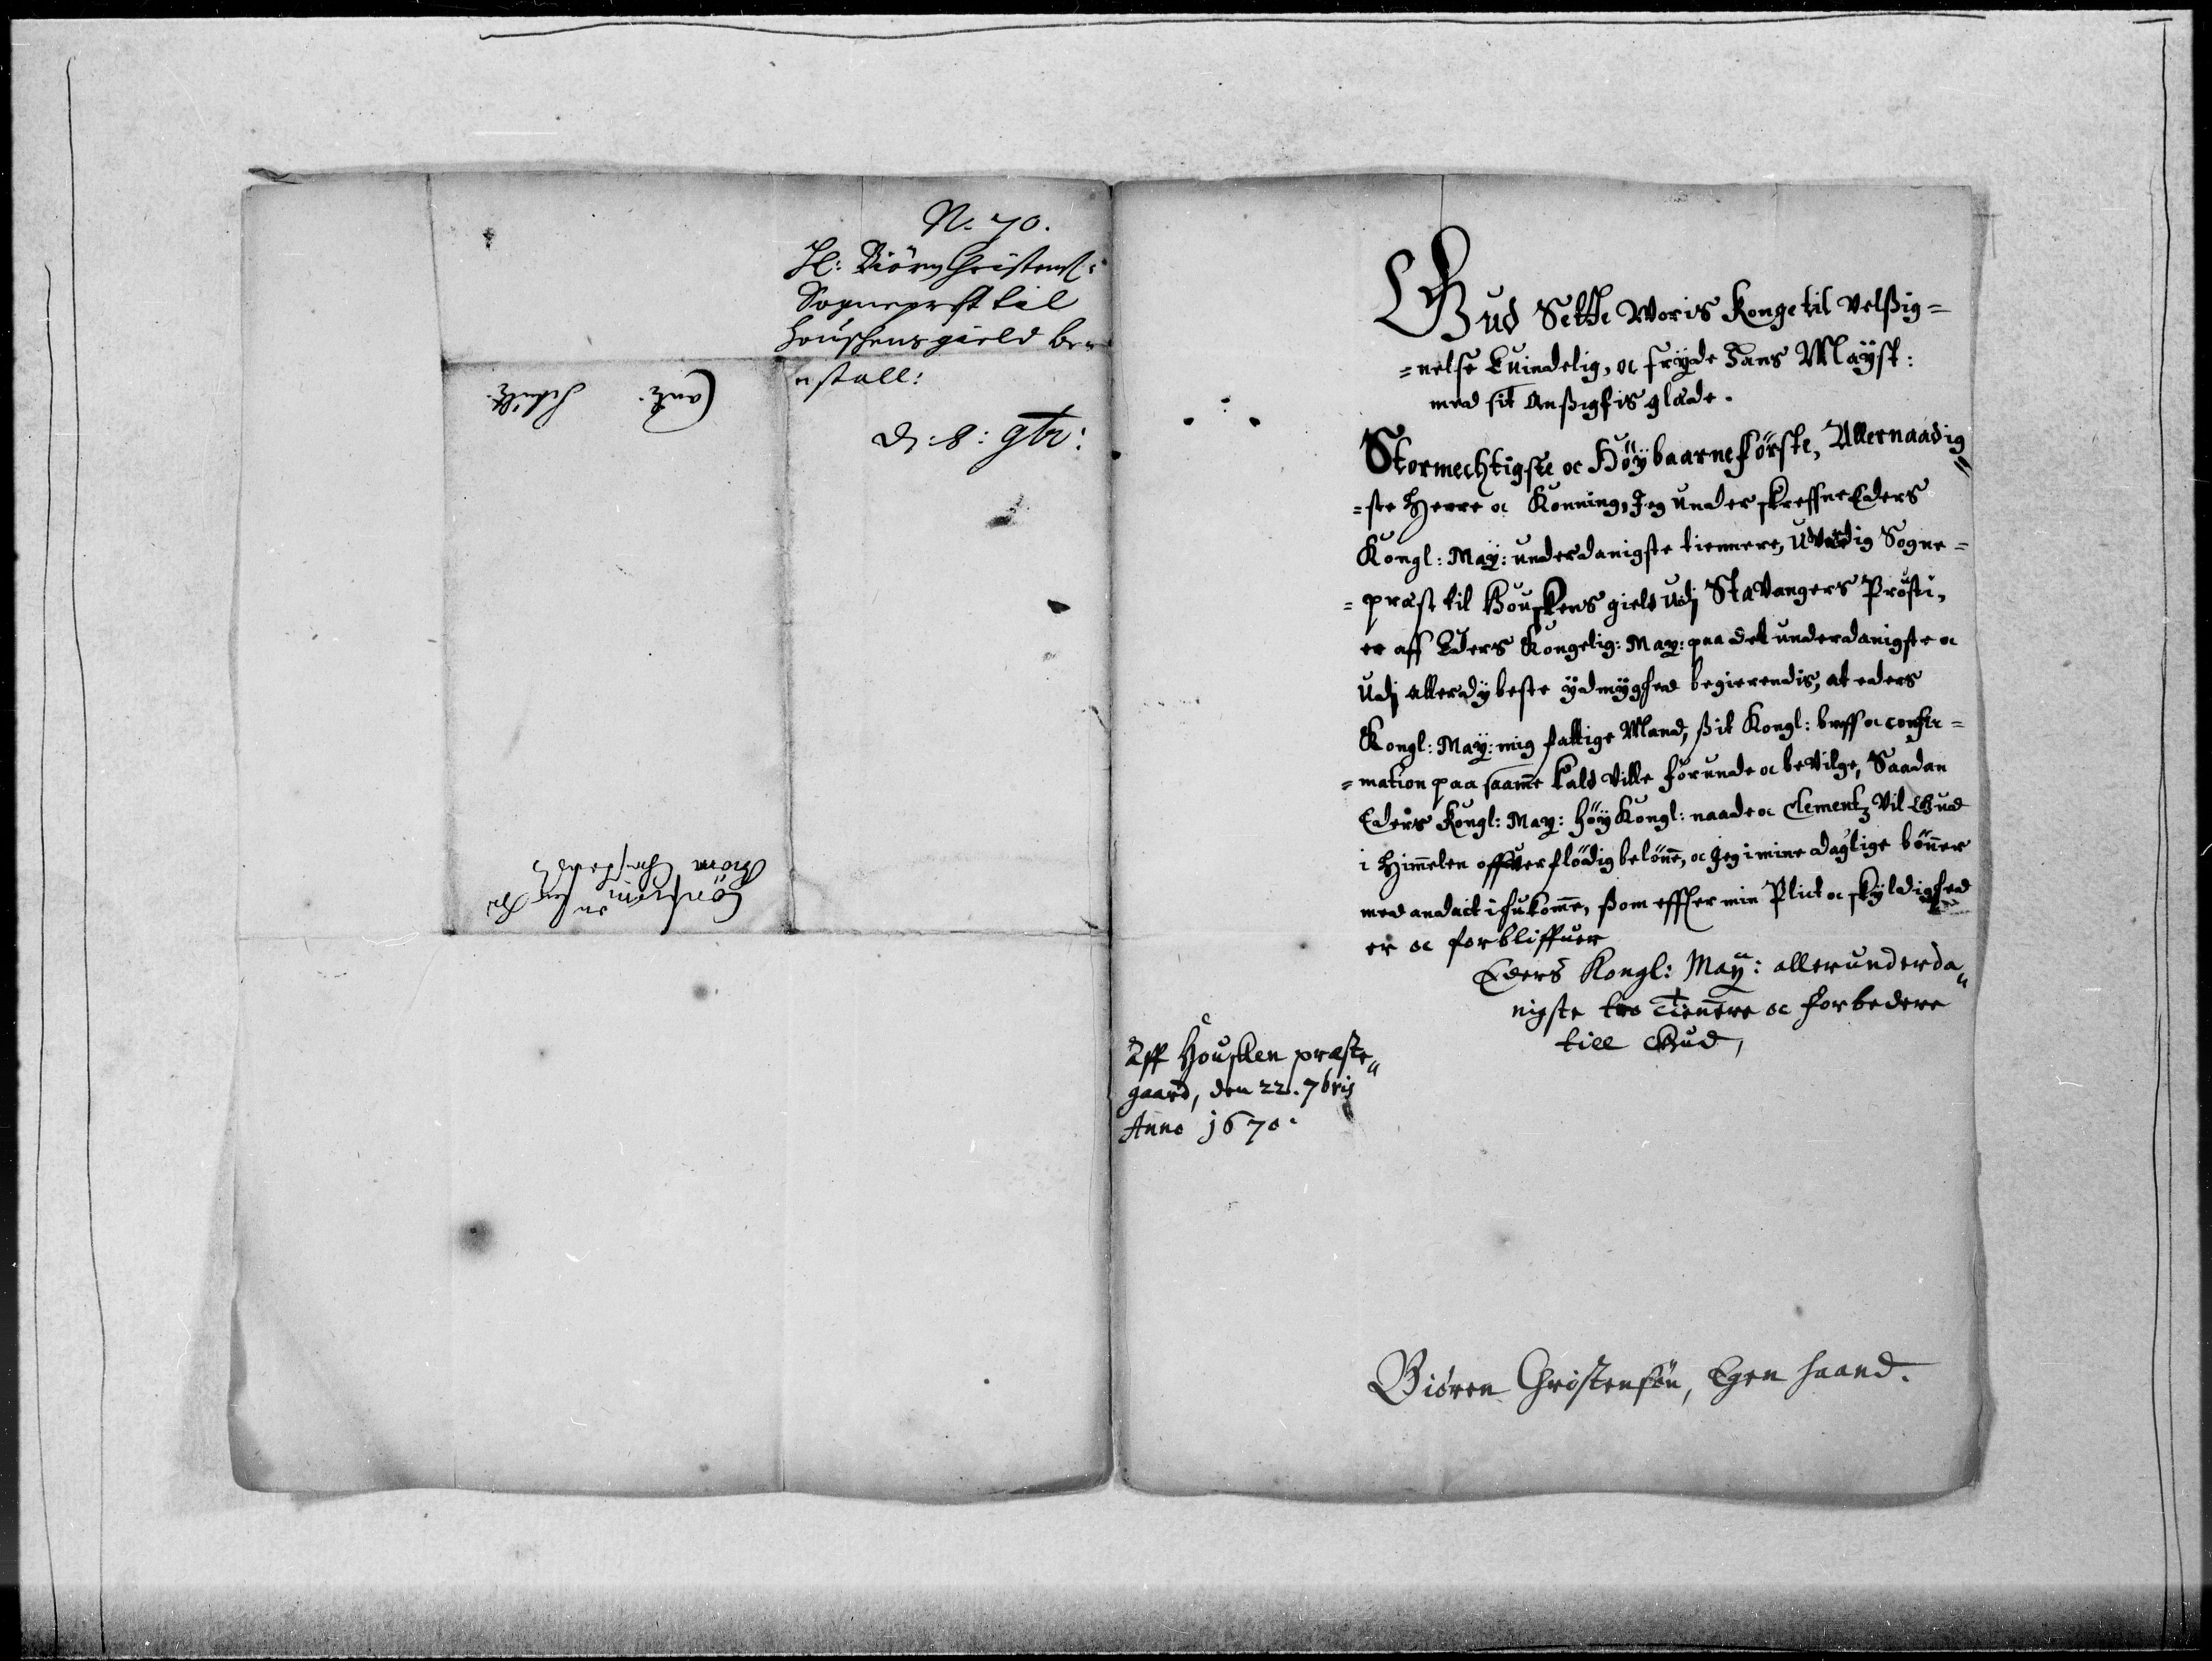 N. 70.
Hl: Biörn Christens:
Sogneprst til
Houskens gield be-
stall:
d: 8: 9br:
Cantz: Schultz
Confirm: for Hr
Biörn Christens
Gud Sette Woris Konge til velßig=
=nelse Euindelig, oc fryde Hans Mayst:
med sit Anßigtis glæde.
Stormechtigste oc Höybaarne Förste, Allernaadig
=ste Herre oc Konning, Jeg underskreffne Eders
Kongl: May: underdanigste tiennere, Uverdig Sogne=
=præst til Houskens gield udj Stavangers Prousti,
er aff Eders Kongelig: May: paa det underdanigste oc
Udj allerdybeste ydmyghed begierendis, at eders
Kongl: May: mig fattige Mand, ßit Kongl: breff oc confir=
=mation paa samme kald ville forunde oc bevilge, Saadan
Eders Kongl: May: höy Kongl: naade oc Clementz Vil Gud
i Himelen offverflödig belöne, oc Jeg i mine daglige böner
med andact ihukome, ßom effter min Plict oc skyldighed
er oc forbliffuer
Eders Kongl: May: allerunderda"
nigste tro Tienere oc forbedere
till Gud,
Aff Housken præste"
gaard, den 22. 7bris
Anno 1670.
Biören Christensön, Egen haand.